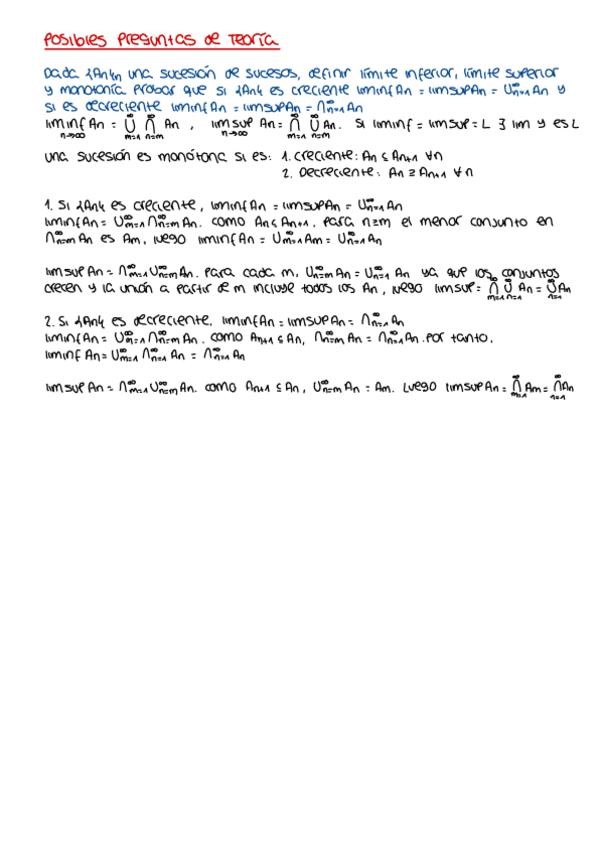 Posibles Preguntas de Teoría
Dada {An}n una sucesión de sucesos, definir límite inferior, límite superior
y monotonía. Probar que si {An} es creciente liminfAn = limsupAn = ⋃∞n=1 An y
si es decreciente liminfAn = limsupAn = ⋂∞n=1 An
liminf n→∞ An = ∞⋃m=1 ∞⋂n=m An , limsup n→∞ An = ∞⋂m=1 ∞⋃n=m An. Si liminf = limsup = L ∃ lim y es L
una sucesión es monótona si es: 1. creciente: An ⊆ An+1 ∀n
2. Decreciente: An ⊇ An+1 ∀n
1. Si {An} es creciente, liminfAn = limsupAn = ⋃∞n=1 An
liminfAn = ⋃∞m=1 ⋂∞n=m An. como An ⊆ An+1. Para n≥m el menor conjunto en
⋂∞n=m An es Am, luego liminfAn = ⋃∞m=1 Am = ⋃∞n=1 An
limsupAn = ⋂∞m=1 ⋃∞n=m An. Para cada m, ⋃∞n=m An = ⋃∞n=1 An ya que los conjuntos
crecen y la unión a partir de m incluye todos los An, luego limsup = ∞⋂m=1 ∞⋃n=1 An = ∞⋃n=1 An
2. Si {An} es decreciente, liminfAn = limsupAn = ⋂∞n=1 An
liminfAn = ⋃∞m=1 ⋂∞n=m An. como An+1 ⊆ An, ⋂∞n=m An = ⋂∞n=1 An. Por tanto,
liminf An = ⋃∞m=1 ⋂∞n=1 An = ⋂∞n=1 An
limsup An = ⋂∞m=1 ⋃∞n=m An. como An+1 ⊆ An, ⋃∞n=m An = Am. Luego limsupAn = ∞⋂m=1 Am = ∞⋂n=1 An